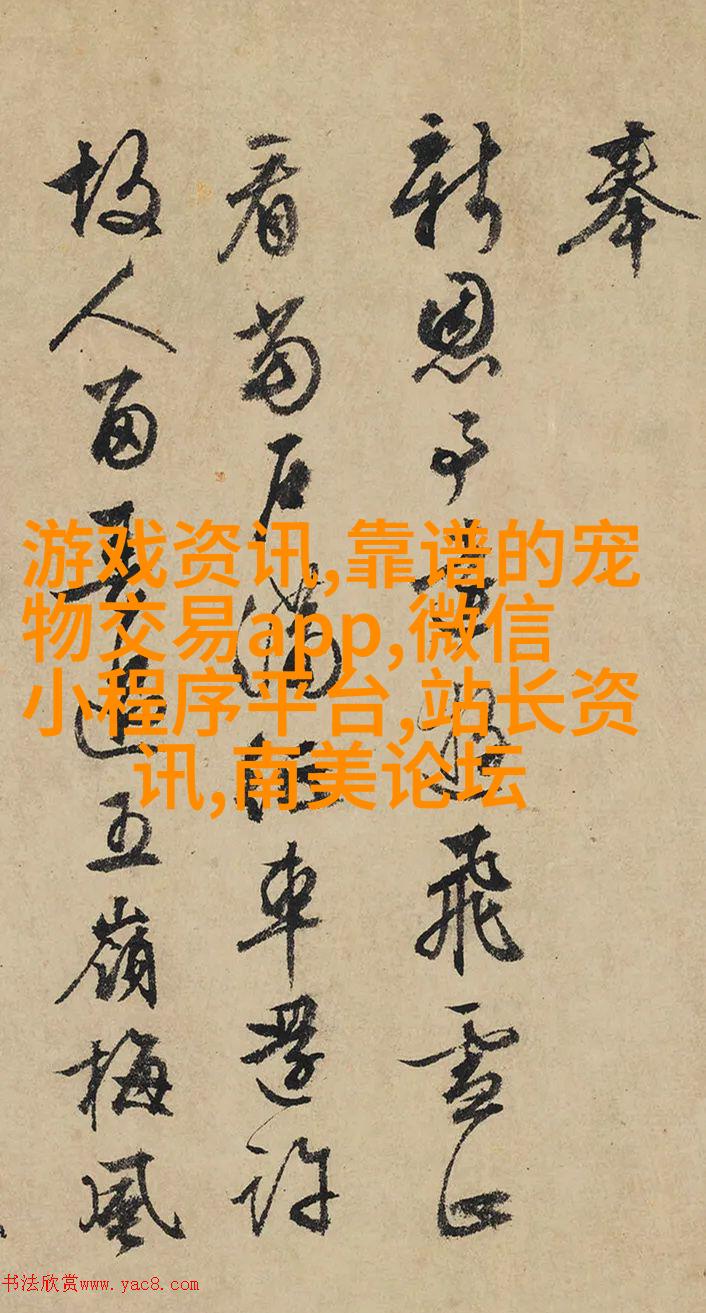 奉
新恩予重飛雪正
看當石滿車還許
故人留五嶺梅風
游戏资讯,靠谱的宠
物交易app,微信
小程序平台,站长资
讯,南美论坛
书法欣赏www.yac8.com